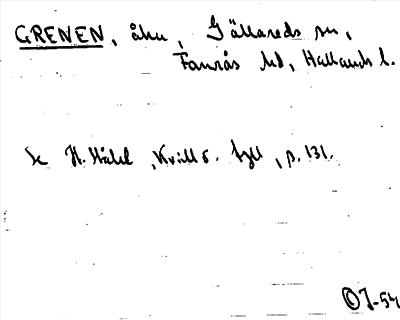 GRENEN, åker, Gällareds sn,
Faurås hd, Hallands l.
Se H. Ståhl, Kvill o. tyll, p. 131.
OJ-54